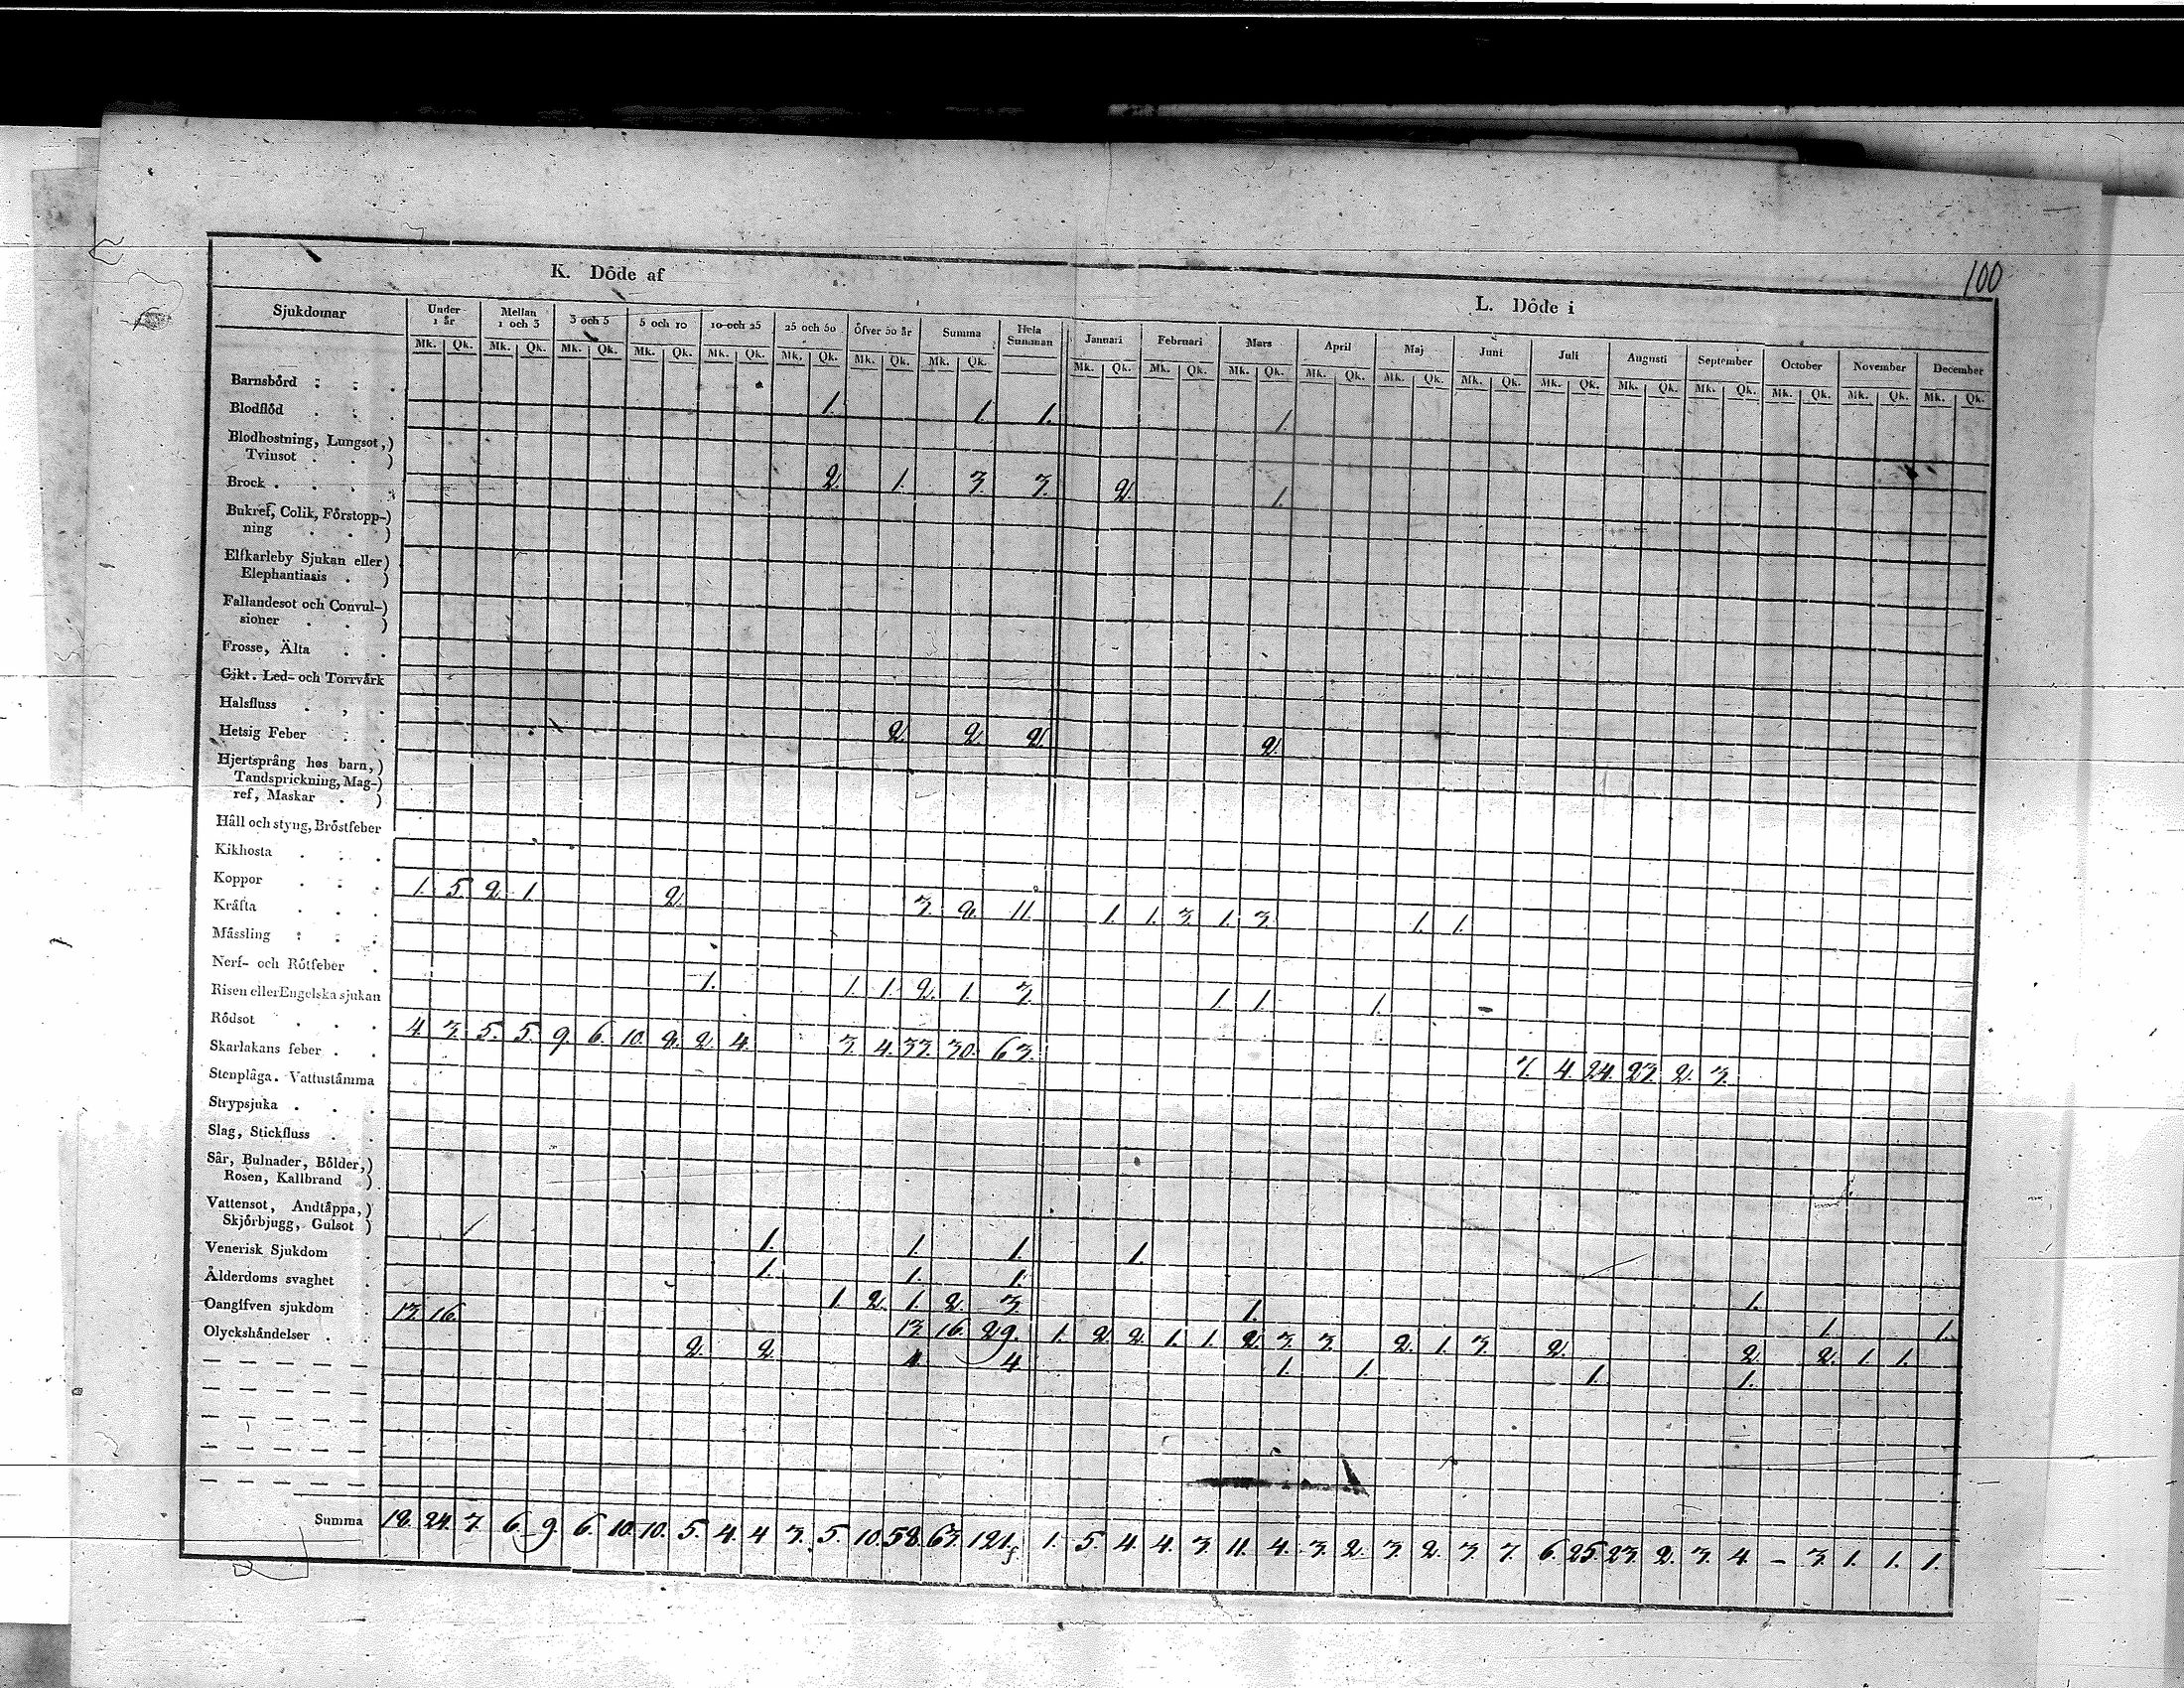 100
K. Döde af
L. Döde i
Sjukdomar
Under 1 år Mellan 1 och 3 3 och 5 5 och 10 10 och 25 25 och 50 Öfver 50 år Summa Hela Summan Januari Februari Mars April Maj Juni Juli Augusti September October November December
Mk. Qk. Mk. Qk. Mk. Qk. Mk. Qk. Mk. Qk. Mk. Qk. Mk. Qk. Mk. Qk. Mk. Qk. Mk. Qk. Mk. Qk. Mk. Qk. Mk. Qk. Mk. Qk. Mk. Qk. Mk. Qk. Mk. Qk. Mk. Qk. Mk. Qk. Mk. Qk.
Barnsbörd 1. 1. 1. 1.
Blodflöd
Blodhostning, Lungsot,)
Tvinsot . . ) 2. 1. 3. 3. 2. 1.
Brock
Bukref, Colik, Förstopp-)
ning . . )
Elfkarleby Sjukan eller)
Elephantiasis . )
Fallandesot och Convul-)
sioner . . )
Frosse, Älta
Gikt. Led- och Torrvärk
Halsfluss
Hetsig Feber 2. 2. 2. 2.
Hjertsprång hos barn,)
Tandsprickning, Mag-)
ref, Maskar . )
Håll och styng, Bröstfeber
Kikhosta
Koppor 1. 5. 2. 1. 2. 3. 2. 11. 1. 1. 3. 1. 3. 1. 1.
Kräfta
Mässling
Nerf- och Rötfeber 1. 1. 1. 2. 1. 3. 1. 1. 1.
Risen eller Engelska sjukan
Rödsot 4. 3. 5. 5. 9. 6. 10. 2. 2. 4. 3. 4. 33. 30. 63. 7. 4. 24. 23. 2. 3.
Skarlakans feber
Stenplåga. Vattustämma
Strypsjuka
Slag, Stickfluss
Sår, Bulnader, Bölder,)
Rosen, Kallbrand )
Vattensot, Andtäppa,)
Skjörbjugg, Gulsot ) 1. 1. 1. 1.
Venerisk Sjukdom 1. 1. 1. 1.
Ålderdoms svaghet 1. 2. 1. 2. 3. 1. 1. 1.
Oangifven sjukdom 13. 16. 13. 16. 29. 1. 2. 2. 1. 1. 2. 3. 3. 2. 1. 3. 2. 2. 2. 1. 1.
Olyckshändelser 2. 2. 4. 4. 1. 1. 1. 1.
Summa 18. 24. 7. 6. 9. 6. 10. 10. 5. 4. 4. 3. 5. 10. 58. 63. 121. 1. 5. 4. 4. 3. 11. 4. 3. 2. 3. 2. 3. 7. 6. 25. 23. 2. 3. 4. – 3. 1. 1. 1.